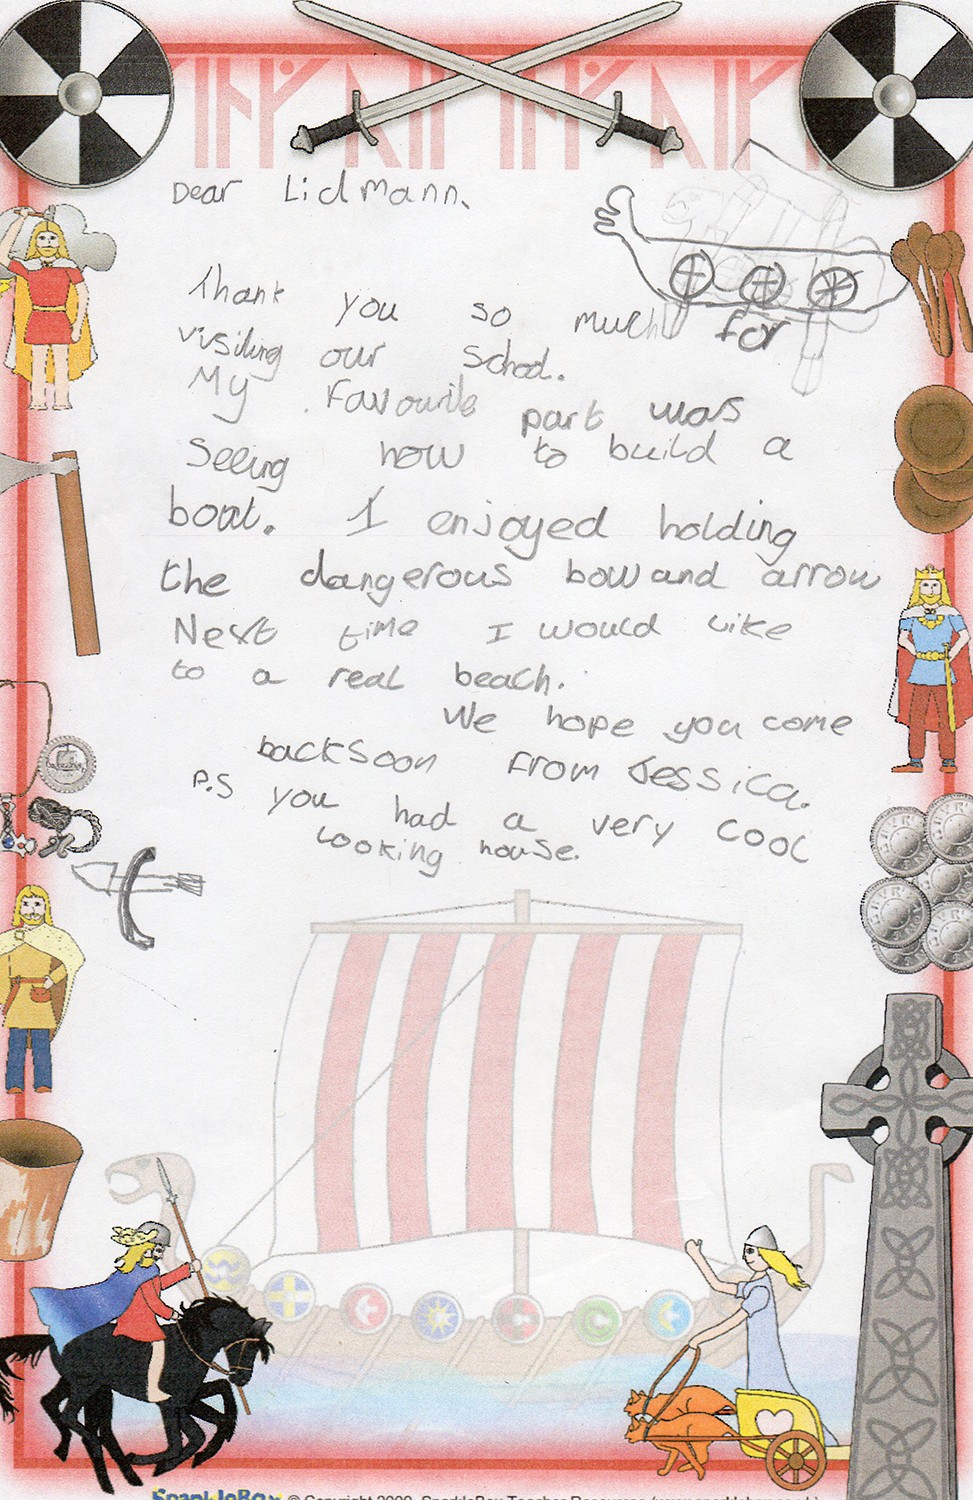 Dear Lidmann.
Thank you so much for
visiting our school.
My favourite part was
seeing how to build a
boat. I enjoyed holding
the dangerous bow and arrow
Next time I would like
to a real beach.
We hope you come
back soon from Jessica.
P.S you had a very cool
looking house.
SparkleBox © Copyright 2009, SparkleBox Teacher Resources